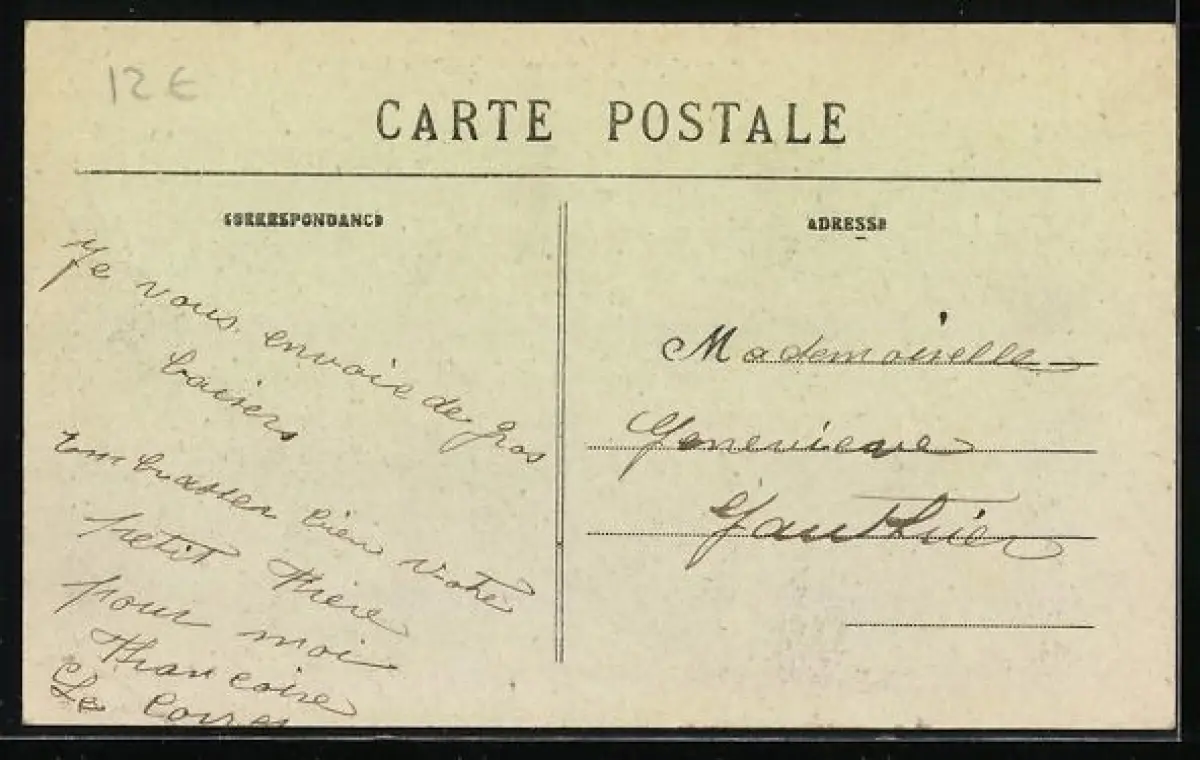 12 €
CARTE POSTALE
CORRESPONDANCE
ADRESSE
Je vous envoie de gros
baisers
Embrasser bien votre
petit frere
pour moi
Francoise
Le
Mademoiselle
Genevieve
Gauthier